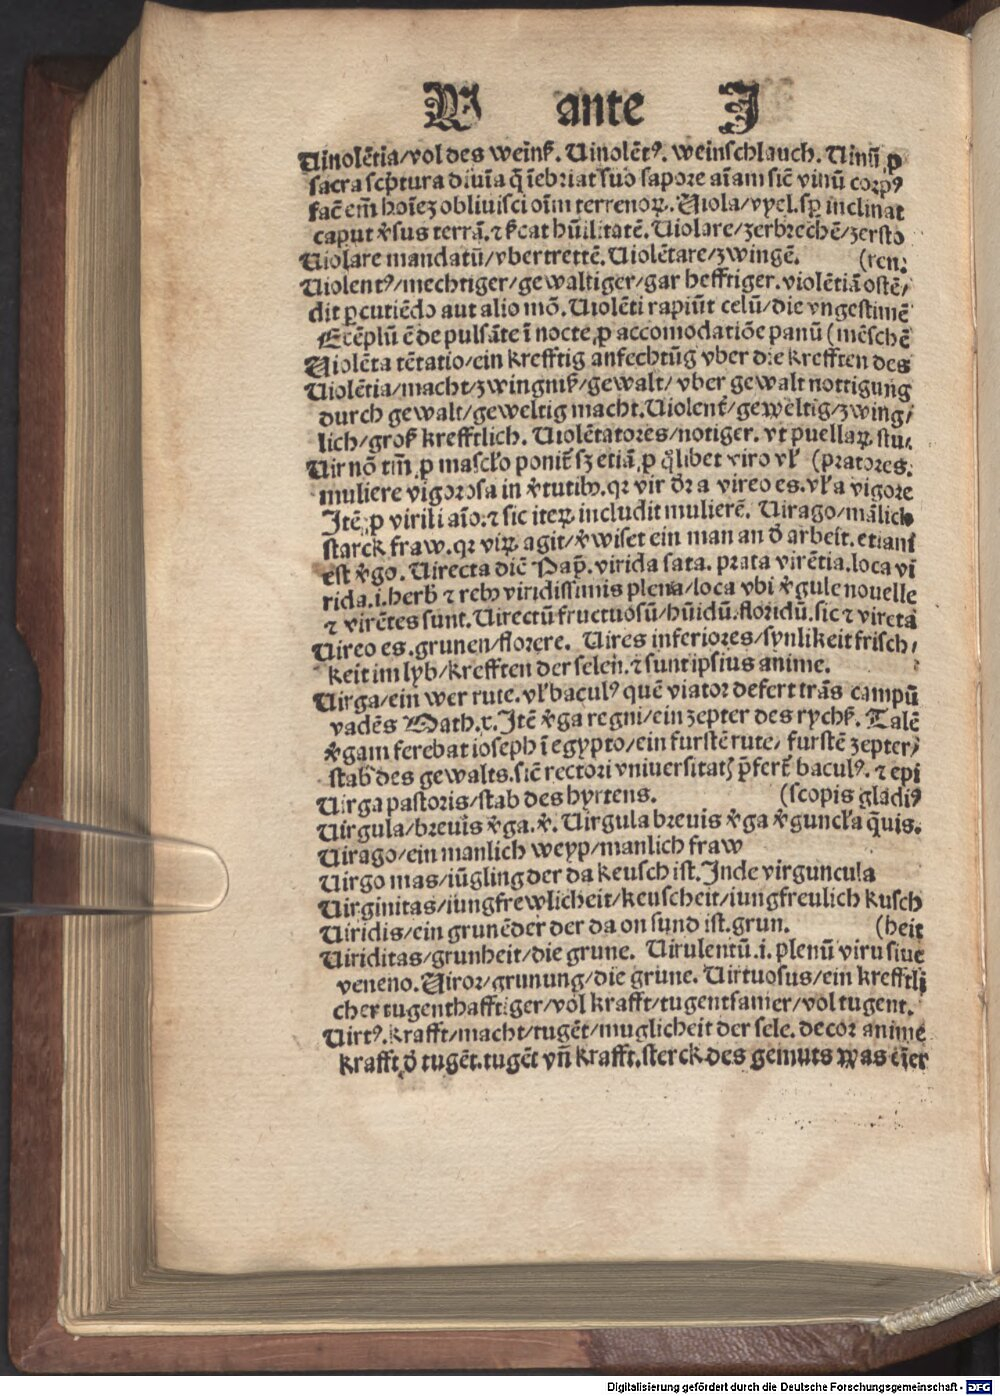 V ante I
Uinolētia/vol des weinß. Uinolēt⁹. weinschlauch. Uinū ꝓ
sacra scp̄tura diuīa q̄ īebriat suo sapore aīam sic̄ vinū corp⁹
fac̄ em̄ hoīez obliuisci oīm terrenoꝝ. Uiola/vyel. sꝑ inclinat
caput ꝟsus terrā. ⁊ ßcat hūilitatē. Uiolare/zerbrechē/zersto
Uiolare mandatū/vbertrettē. Uiolētare/zwingē. (ren.
Uiolent⁹/mechtiger/gewaltiger/gar hefftiger. violētiā ostē/
dit ꝑcutiēdo aut alio mō. Uiolēti rapiūt celū/die vngestimē
Ecēplū ē de pulsāte ī nocte ꝓ accomodatiōe panū (mēschē
Uiolēta tētatio/ein krefftig anfechtūg vber die krefften des
Uiolētia/macht/zwingniß/gewalt/vber gewalt nottigung
durch gewalt/geweltig macht. Uiolent̄/geweltig/zwing/
lich/groß krefftlich. Uiolētatores/notiger. vt puellaꝝ stu.
Uir nō tm̄ ꝓ mascl̓o ponit̄ sꝫ etiā ꝓ q̊libet viro vl̓ (pratores.
muliere vigorosa in ꝟtutibꝫ. qꝛ vir dr̄ a vireo es. vl̓ a vigore
Itē ꝓ virili aīo. ⁊ sic iteꝝ includit mulierē. Uirago/mālich
starck fraw. qꝛ viꝝ agit/ꝟwiset ein man an d̄ arbeit. etiam
est ꝟgo. Uirecta dic̄ Pap̄. virida sata. prata virētia. loca vi
rida. i. herb̄ ⁊ rebꝫ viridissimis plena/loca vbi ꝟgule nouelle
⁊ virētes sunt. Uirectū fructuosū/hūidū. floridū. sic ⁊ vireta
Uireo es. grunen/florere. Uires inferiores/synlikeit frisch/
keit im lyb/krefften der selen. ⁊ sunt ipsius anime.
Uirga/ein wer rute. vl̓ bacul⁹ quē viator defert trās campū
vadēs Math. x. Itē ꝟga regni/ein zepter des rychß. Talē
ꝟgam ferebat ioseph ī egypto/ein furstē rute/ furstē zepter/
stab des gewalts. sic̄ rectori vniuersitatꝭ p̄fert̄ bacul⁹. ⁊ epi
Uirga pastoris/stab des hyrtens. (scopis gladi⁹
Uirgula/breuis ꝟga. ꝟ. Uirgula breuis ꝟga ꝟguncl̓a q̄uis.
Uirago/ein manlich weyp/manlich fraw
Uirgo mas/iūgling der da keusch ist. Inde virguncula
Uirginitas/iungfrewlicheit/keuscheit/iungfreulich kusch
Uiridis/ein grunēder der da on sund ist. grun. (heit
Uiriditas/grunheit/die grune. Uirulentū. i. plenū viru siue
veneno. Uiror/grunung/die grune. Uirtuosus/ein krefftli
cher tugenthafftiger/vol krafft/tugentsamer/vol tugent.
Uirt⁹. krafft/macht/tugēt/muglicheit der sele. decor anime
krafft d̄ tugēt. tugēt vn̄ krafft. sterck des gemuts was eīer
Digitalisierung gefördert durch die Deutsche Forschungsgemeinschaft - DFG